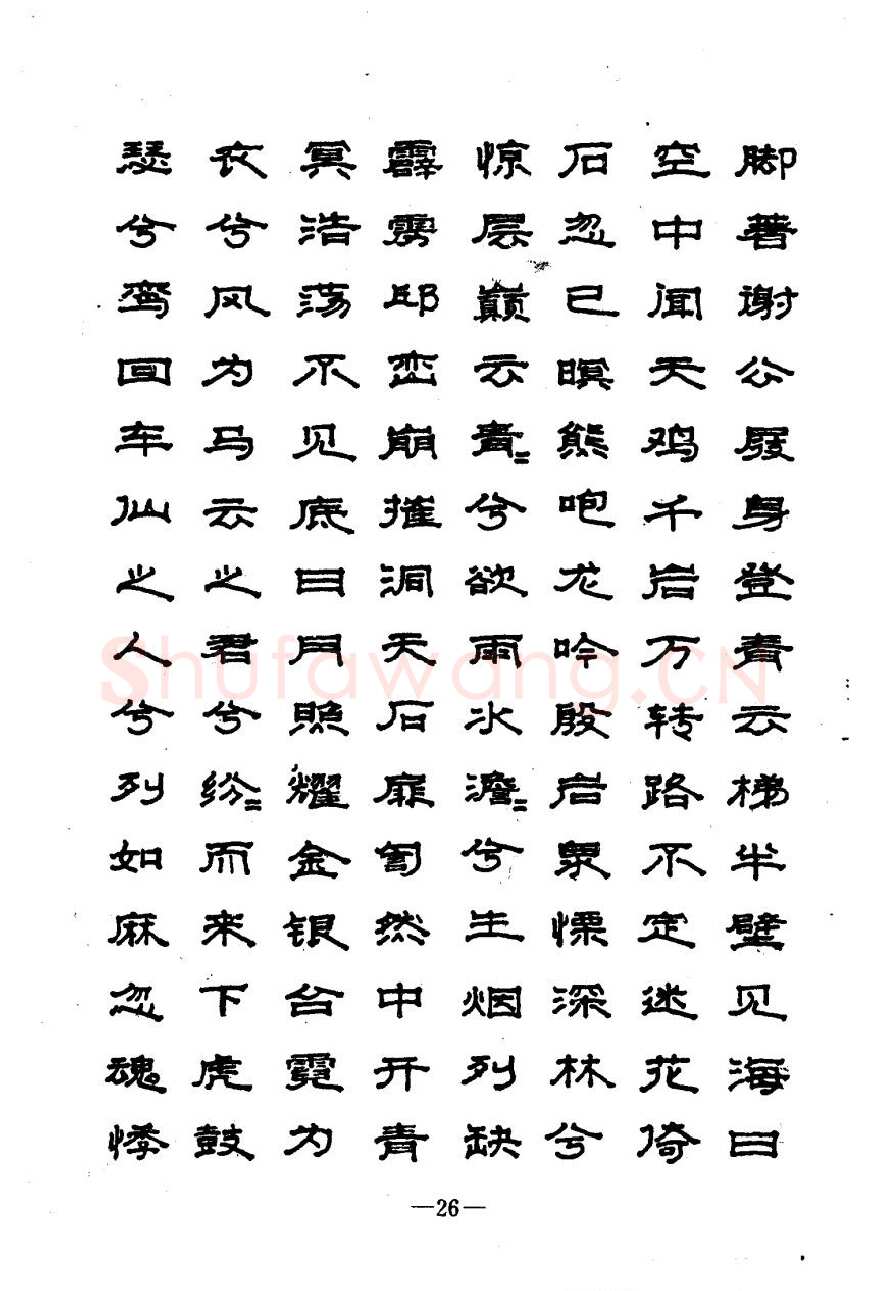 脚著谢公屐身登青云梯半壁见海日
空中闻天鸡千岩万转路不定迷花倚
石忽已暝熊咆龙吟殷岩泉慄深林兮
惊层巅云青=兮欲雨水澹=兮生烟列缺
霹雳邱峦崩摧洞天石扉訇然中开青
冥浩荡不见底日月照耀金银台霓为
衣兮风为马云之君兮纷=而来下虎鼓
瑟兮鸾回车仙之人兮列如麻忽魂悸
—26—
Shufawang.CN